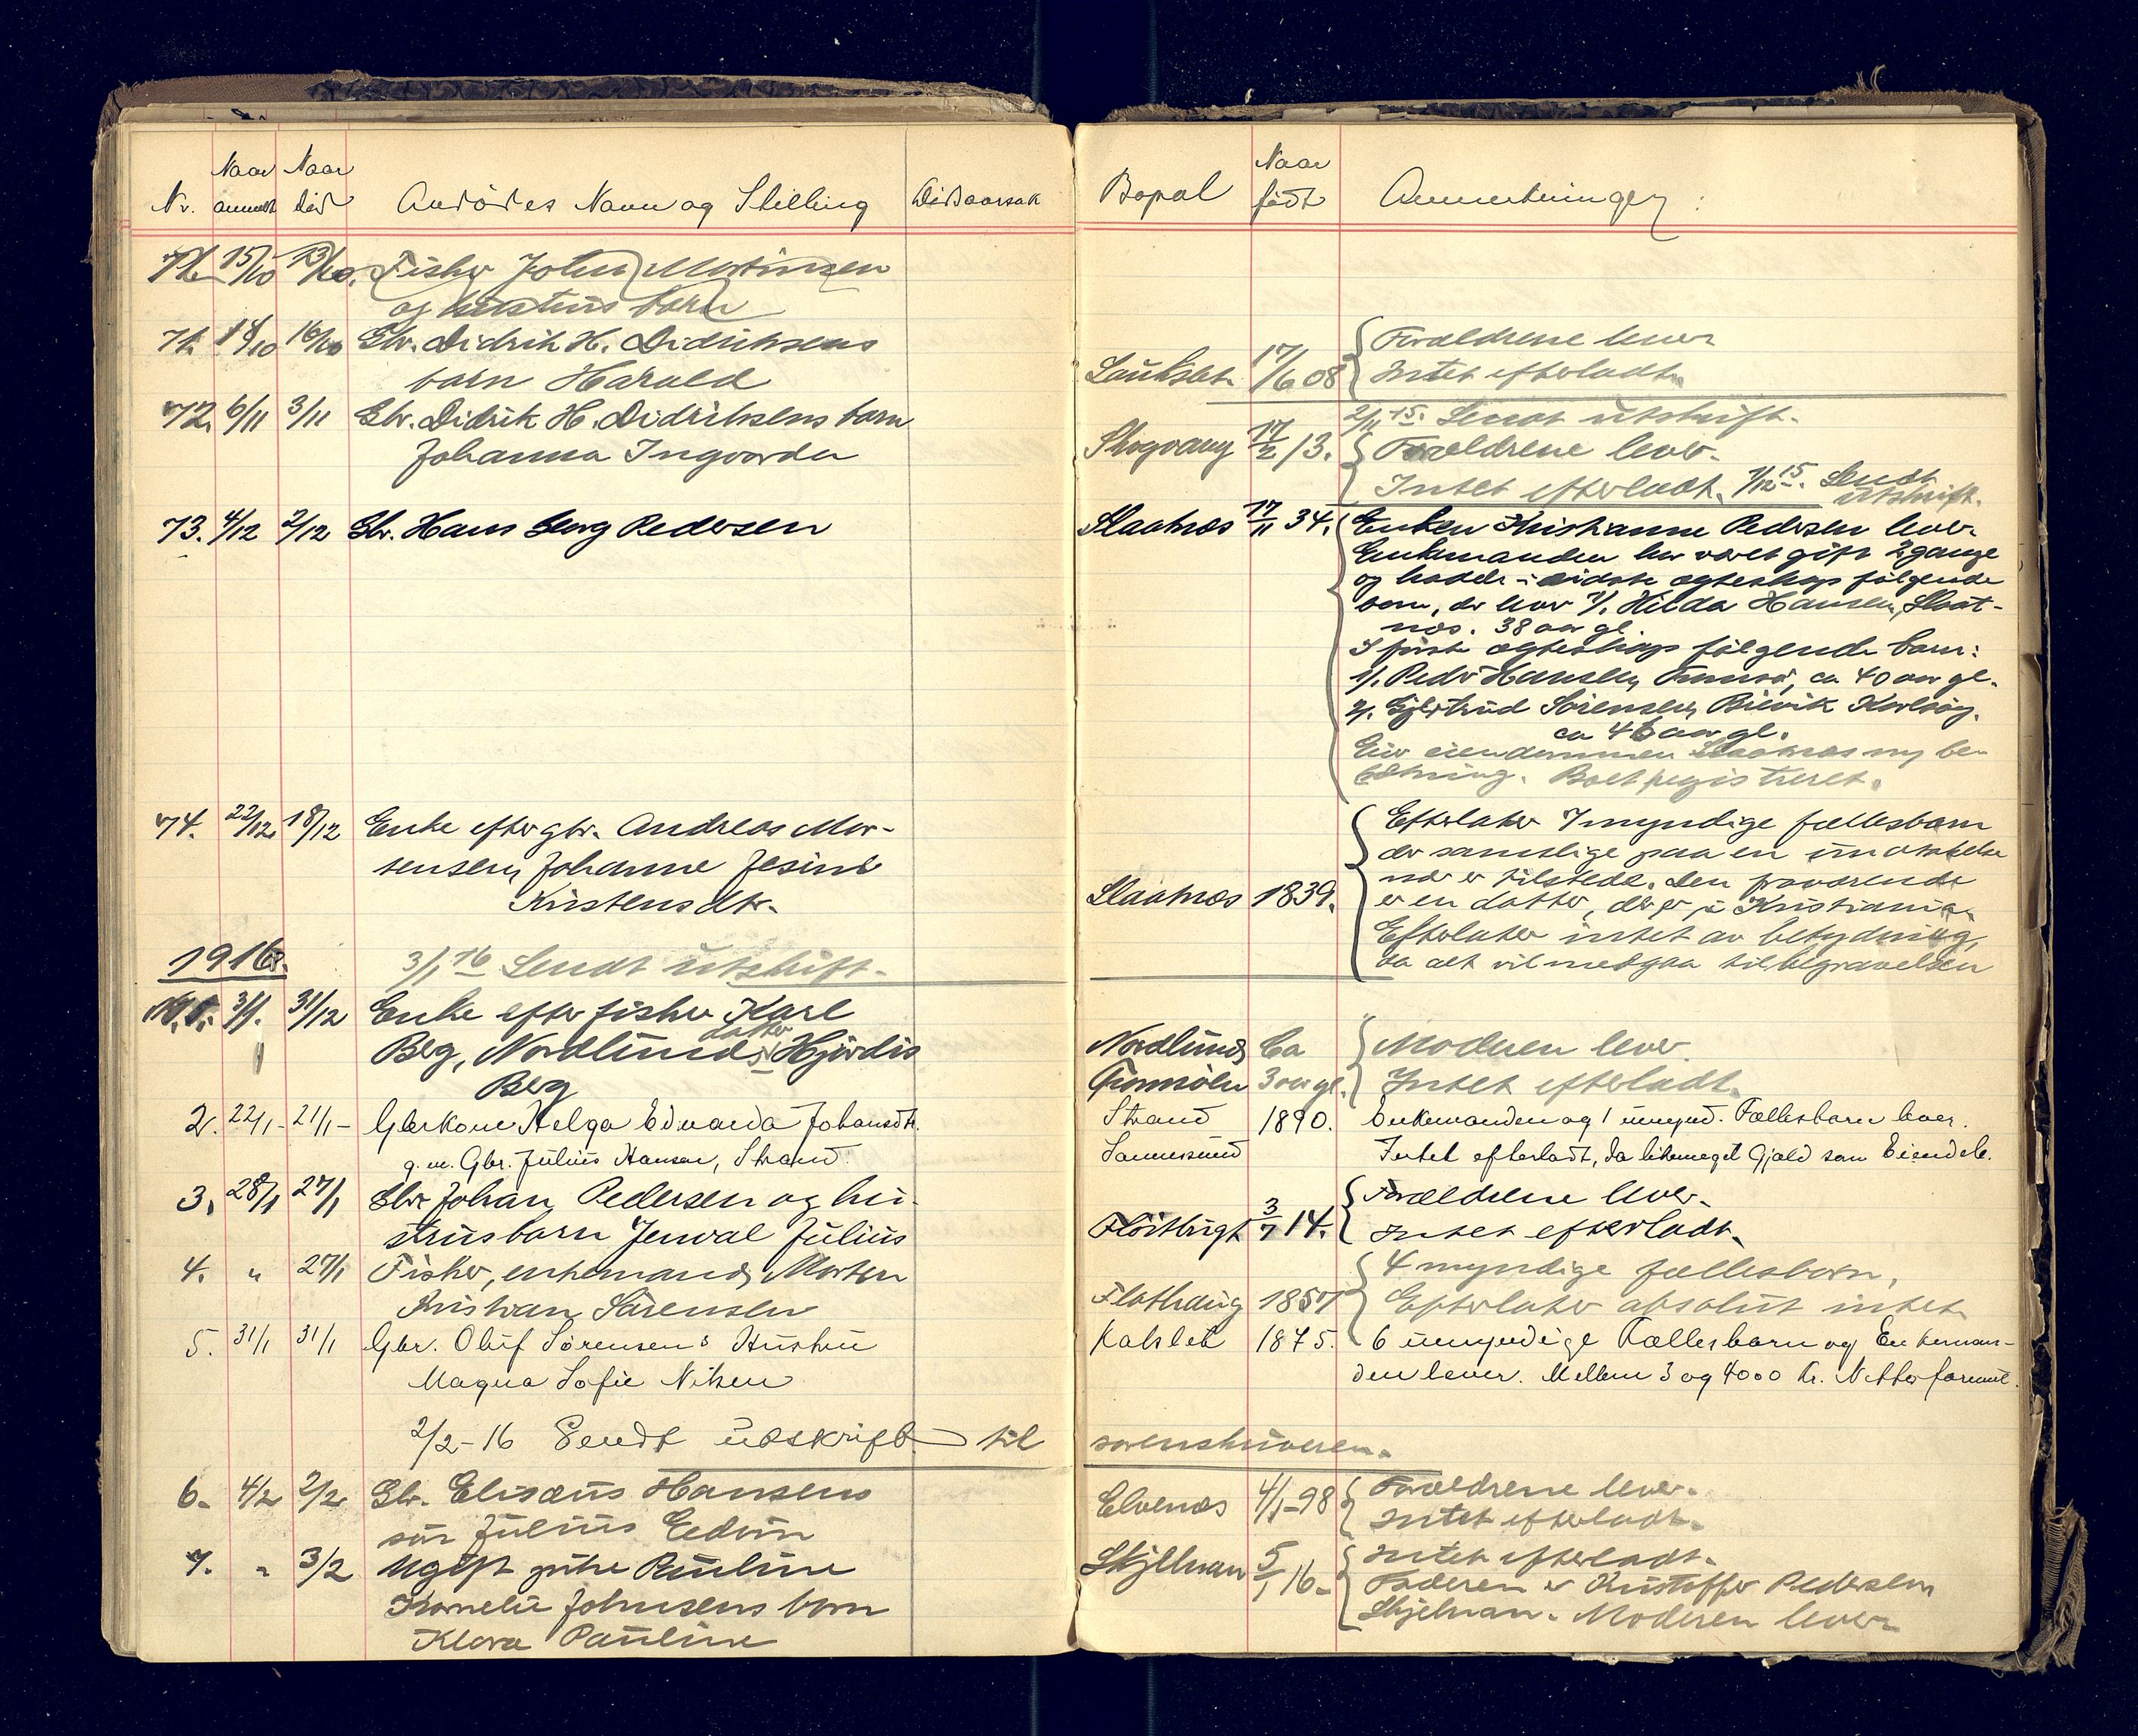 Nr.
Naar anmeldt
Naar død
Avdødes Navn og Stilling
Dødsaarsak
71. 15/10 13/10. Fisker John Martinsen
og hustrus barn
71. 18/10 16/10 Gbr. Didrik H. Didriksens
barn Harald
72. 6/11 3/11 Gbr. Didrik H. Didriksens barn
Johanna Ingvarda
73. 4/12 2/12 Gbr. Hans Georg Pedersen
74. 22/12 18/12 Enke efter gbr. Andreas Mor-
tensen, Johanne Jesine
Kirstensdtr.
1916.
3/1 16 Sendt utskrift.
Nr. 1. 3/1. 31/12 Enke efter fisker Karl
Berg, Nordlund, datter Hjørdis
Berg
2. 22/1 - 21/1 - Gbrkone Helga Edvarda Johansdtr.
g.m. Gbr. Julius Hansen, Strand.
3. 28/1 27/1 Gbr. Johan Pedersen og hu-
strus barn Jenval Julius
4. " 27/1 Fisker, enkemand, Morten
Kristian Sørensen
5. 31/1 31/1 Gbr. Oluf Sørensens Hustru
Magna Sofie Nilsen
2/2-16 Sendt udskrift til
6. 4/2 2/2 Gbr. Elisæus Hansens
søn Julius Edvin
7. " 3/2 Ugift pike Pauline
Kornelie Johnsens barn
Klara Pauline
Bopæl
Naar født
Anmerkninger:
Laukslet 17/6 08 Forældrene lever
Intet efterladt.
2/11 15. Sendt utskrift.
Skogvang 17/2 13. Forældrene lever.
Intet efterladt. 1/12 15. Sendt
utskrift.
Slaatnes 17/11 34. Enken Kristianne Pedersen lever
Enkemanden har været gift 2 gange
og hadde i sidste ægteskap følgende
barn, der lever 1/. Hilda Hansen, Slaat-
nes. 38 aar gl.
I første ægteskap følgende barn:
1/. Peder Hansen, Tromsø, ca 40 aar gl.
2/. Gjertrud Sørensen, Karlsøy.
ca 46 aar gl.
Eier eiendommen Slaatnes m/ be-
sætning. Boet registreret.
Efterlater 7 myndige fællesbarn
der samtlige paa en undtagelse
nær er tilstede. Den fraværende
Slaatnes 1839. er en datter, der er i Kristiania.
Efterlater intet av betydning,
da alt vil medgaa til begravelsen
Nordlund, Ca Moderen lever.
3 aar gl. Intet efterladt.
Strand 1890. Enkemanden og 1 umynd. Fællesbarn lever.
Intet efterladt, da likemeget Gjæld som Eiendele.
Forældrene lever.
Fløitbugt 3/7 14. Intet efterladt.
4 myndige fællesbarn,
Flathaug 1857 Efterlater absolut intet.
Kalslet 1875. 6 umyndige Fællesbarn og Enkeman-
den lever. Mellem 3 og 4000 Kr. Netto formue.
sorenskriveren.
Elvenes 4/1-98 Forældrene lever.
Intet efterladt.
Skjelnan 5/1 16. Intet efterladt.
Faderen er Kristoffer Pedersen
Skjelnan. Moderen lever